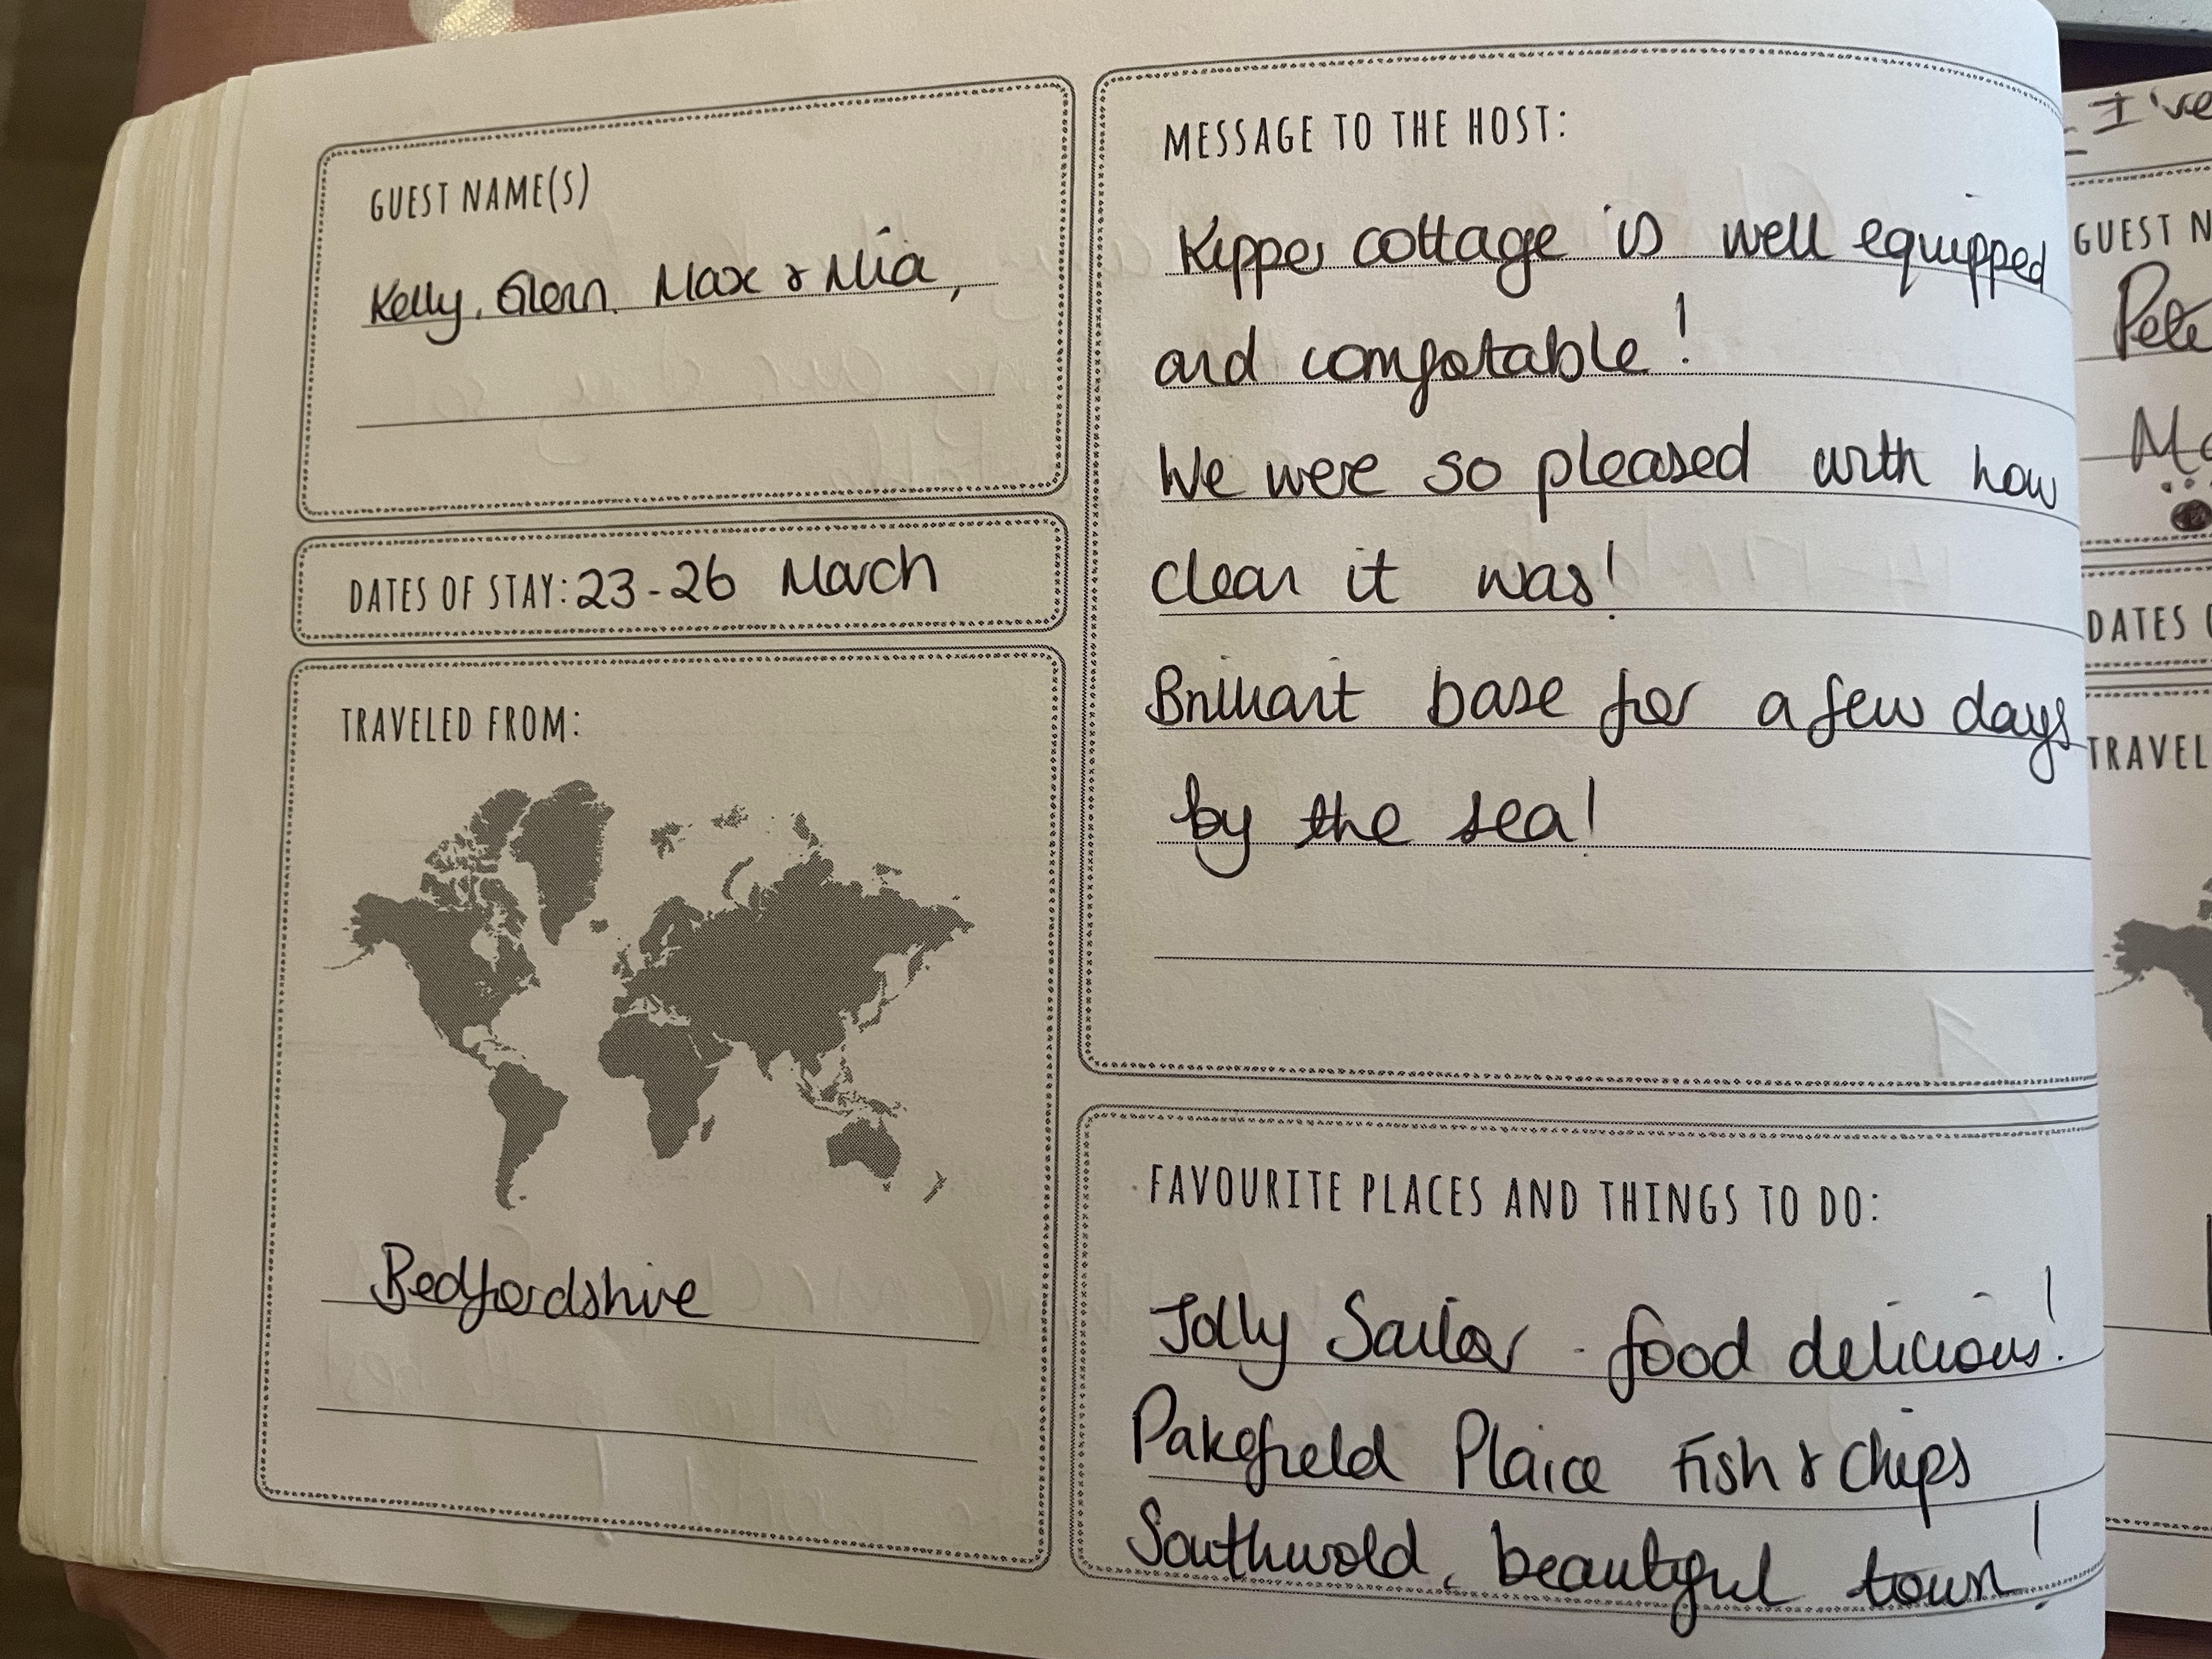 GUEST NAME(S)
Kelly, Glenn, Max & Mia,
DATES OF STAY: 23-26 March
TRAVELED FROM:
Bedfordshire
MESSAGE TO THE HOST:
Kipper cottage is well equipped
and comfotable!
We were so pleased with how
clean it was!
Brilliant base for a few days
by the sea!
FAVOURITE PLACES AND THINGS TO DO:
Jolly Sailor - food delicious!
Pakefield Plaice Fish & Chips
Southwold, beautiful town!
I've
GUEST N
Pete
DATES
TRAVEL